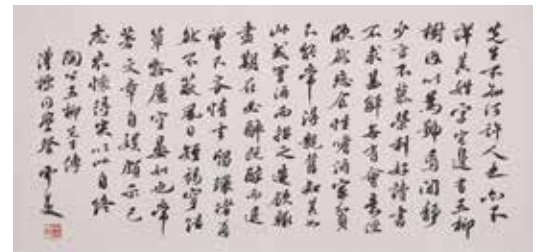 先生不知何許人也亦不
詳其姓字宅邊有五柳
樹因以為號焉閑靜
少言不慕榮利好讀書
不求甚解每有會意便
欣然忘食性嗜酒家貧
不能常得親舊知其如
此或置酒而招之造飲輒
盡期在必醉既醉而退
曾不吝情去留環堵蕭
然不蔽風日短褐穿結
簞瓢屢空晏如也常
著文章自娛頗示己
志忘懷得失以此自終
陶公五柳先生傳
同學